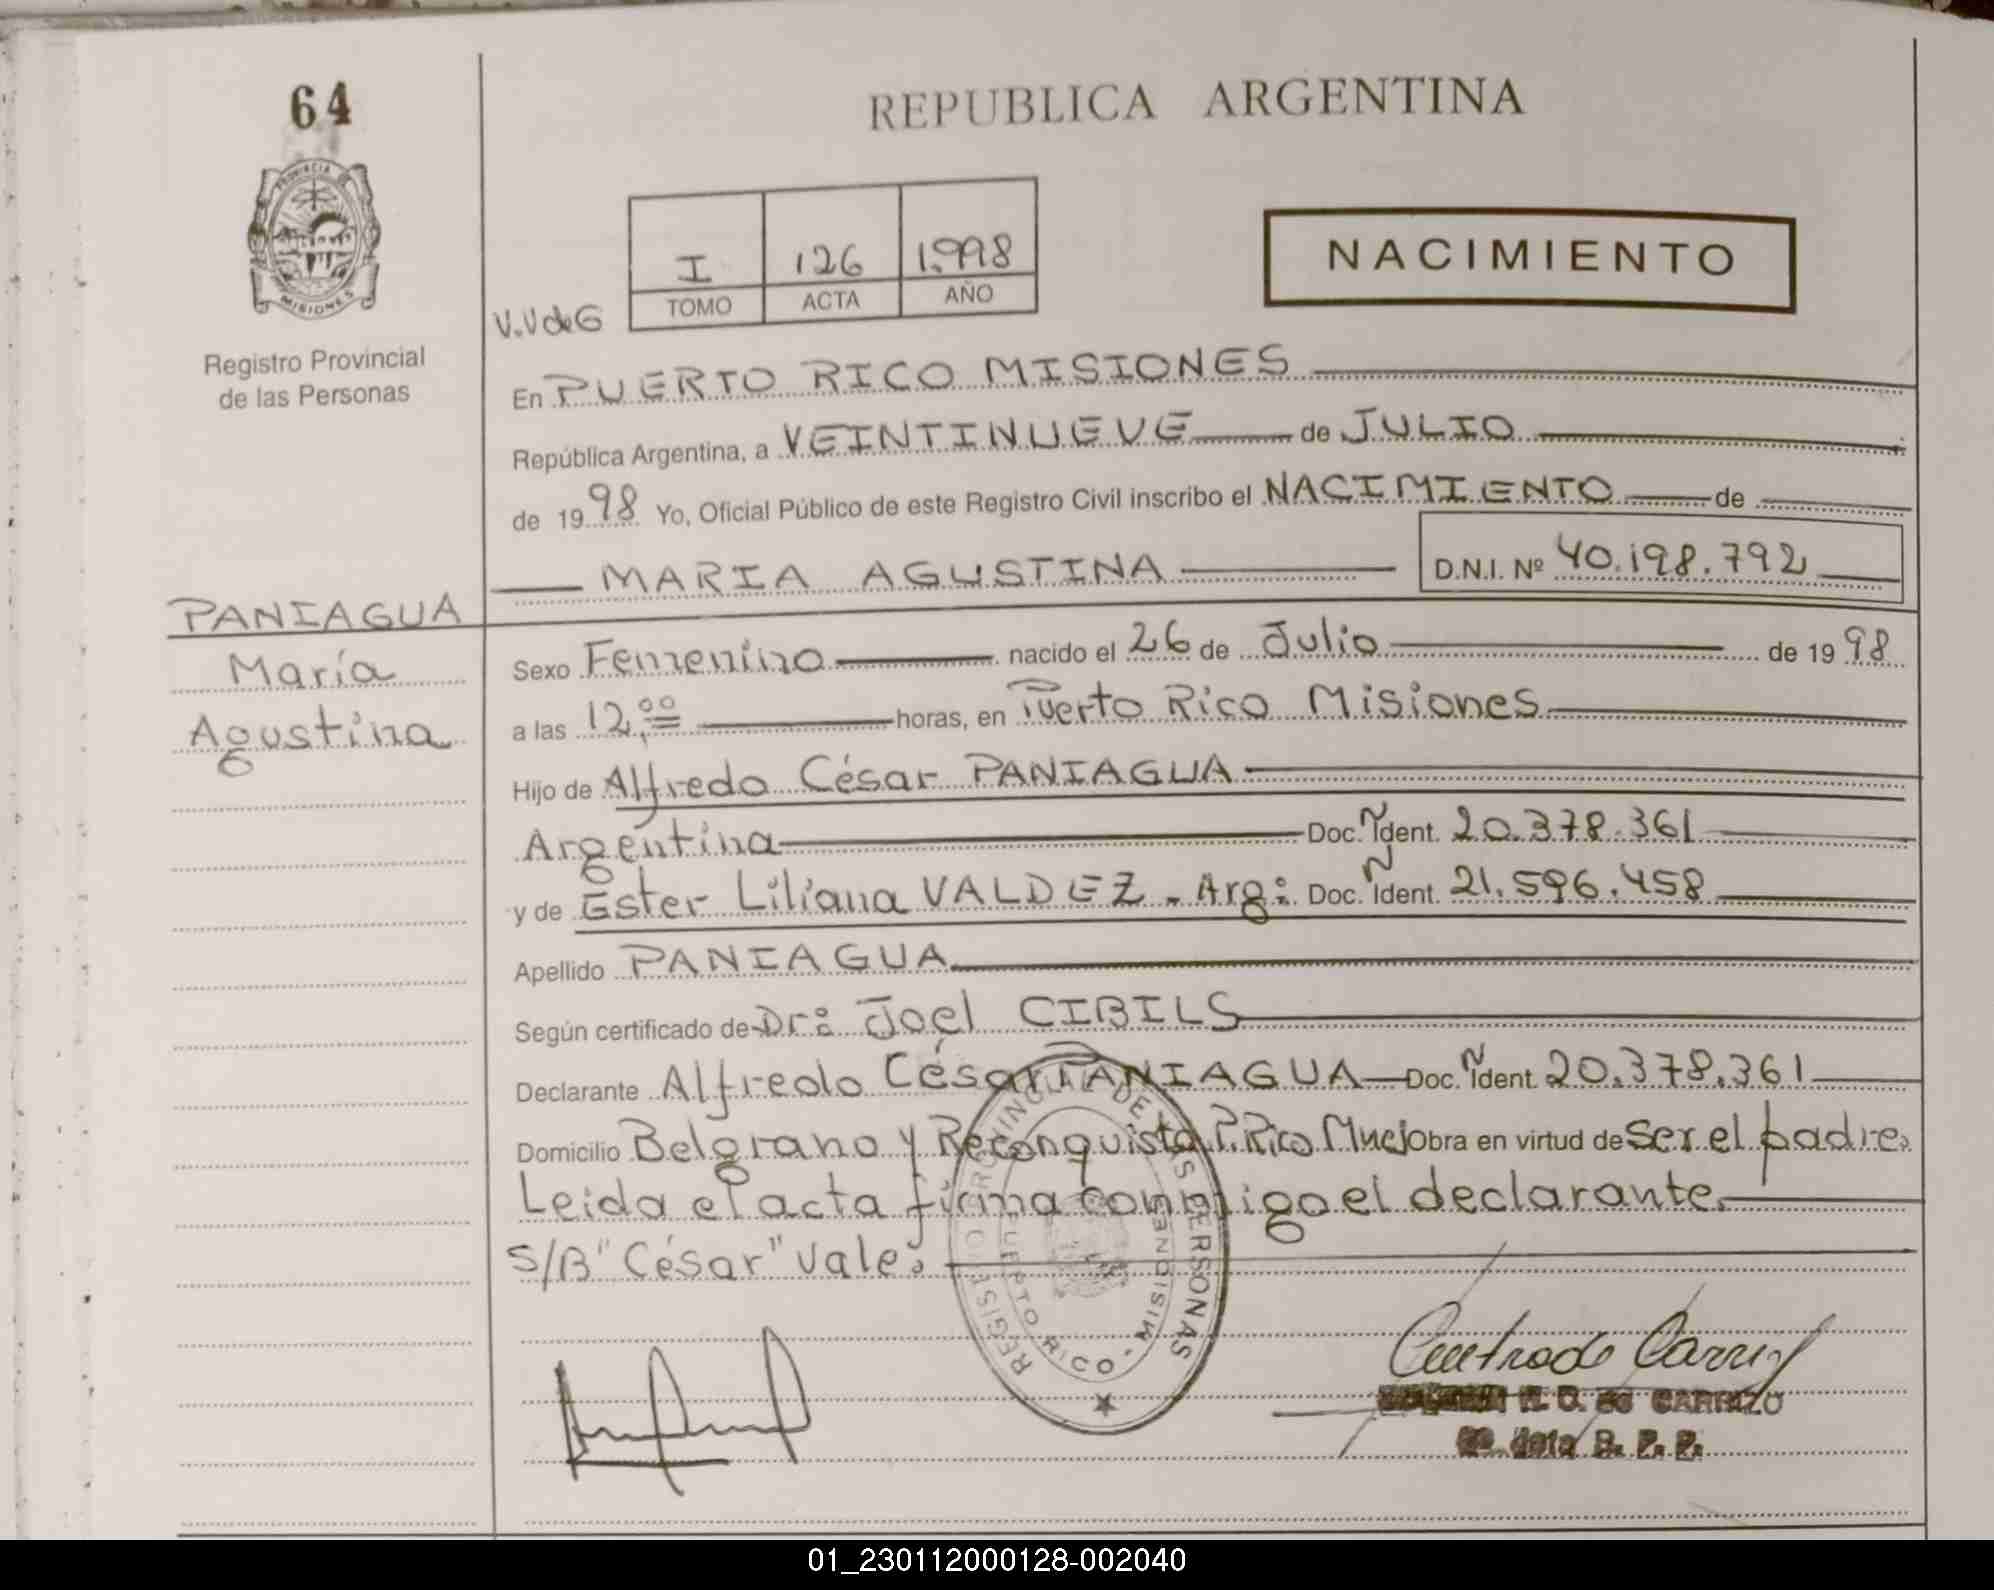 64
REPUBLICA ARGENTINA
PROVINCIA DE
MISIONES
Registro Provincial
de las Personas
I 126 1.998
TOMO ACTA AÑO
NACIMIENTO
V.V de G
En PUERTO RICO MISIONES
República Argentina, a VEINTINUEVE de JULIO
de 1998 Yo, Oficial Público de este Registro Civil inscribo el NACIMIENTO de
MARIA AGUSTINA D.N.I. Nº 40.198.792
PANIAGUA
María
Agustina
Sexo Femenino nacido el 26 de Julio de 1998
a las 12,00 horas, en Puerto Rico Misiones
Hijo de Alfredo César PANIAGUA
Argentina Doc. Nident. 20.378.361
y de Ester Liliana VALDEZ. Arg: Doc. Nident. 21.596.458
Apellido PANIAGUA
Según certificado de Dr: Joel CIBILS
Declarante Alfredo César PANIAGUA Doc. Nident. 20.378.361
Domicilio Belgrano y Reconquista P. Rico Mnes obra en virtud de ser el padre.
Leida el acta firma conmigo el declarante.
S/B "César" Vale.
REGISTRO PROVINCIAL DE LAS PERSONAS
PUERTO RICO - MISIONES
H. O. de CARRIZO
R. P. P.
01_230112000128-002040